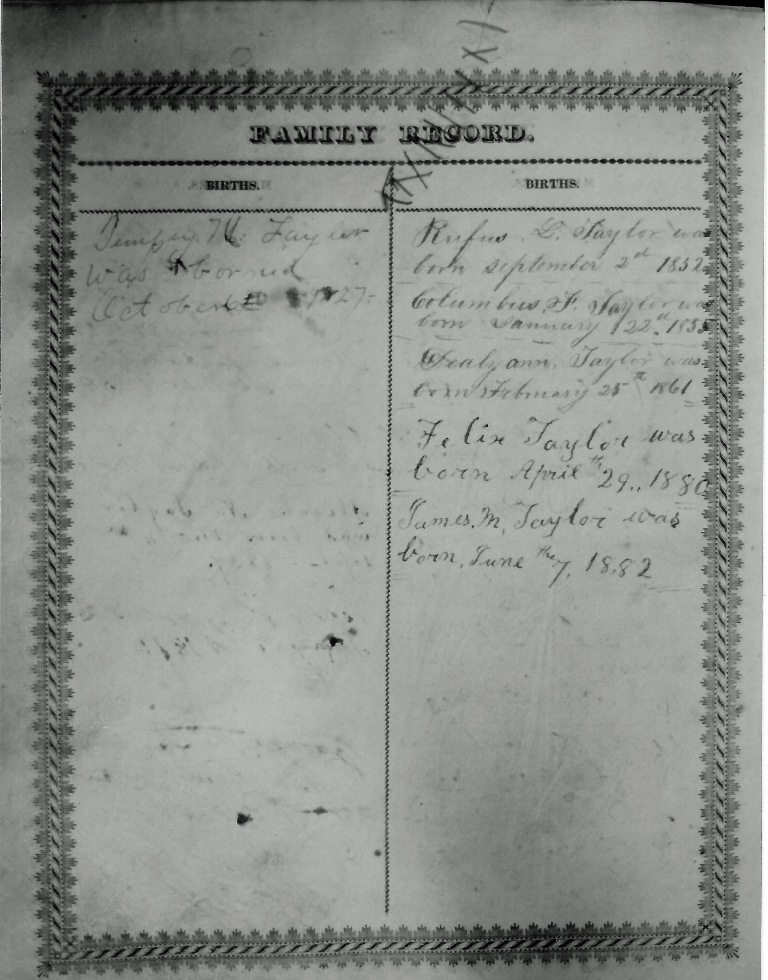 FAMILY RECORD.
BIRTHS.
Tempy M. Taylor
was borned
October 1827
BIRTHS.
Rufus. L. Taylor was
born september 2nd 1852
Columbus F. Taylor was
born January 22nd. 1855
Taylor was
born February 25th 1861
Felix Taylor was
born April th 29., 1880
James. M, Taylor was
born, June the 7, 1882